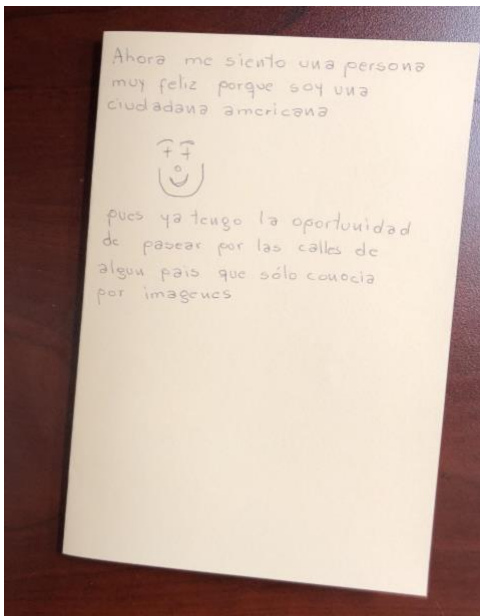 Ahora me siento una persona
muy feliz porque soy una
ciudadana americana
pues ya tengo la oportunidad
de pasear por las calles de
algun pais que sólo conocia
por imagenes